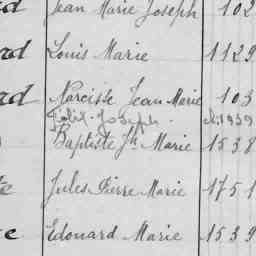 Jean Marie Joseph 102
Louis Marie 1129
Narcisse Jean Marie 103
Joseph 1939
Baptiste Jh Marie 1538
Jules Pierre Marie 1751
Edouard Marie 1539